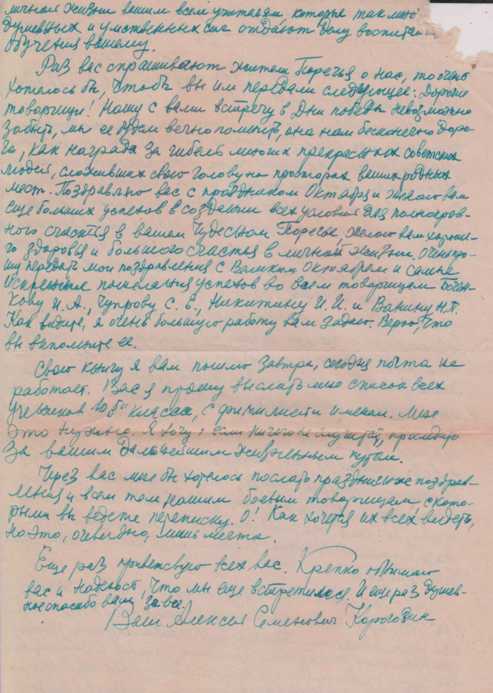 личной жизни вашим всем учителям которые так много
душевных и умственных сил отдают делу воспитания
обучения вашему.
Раз вас спрашивают жители Поречья о нас, то очень
хотелось бы, чтобы вы им передали следующее: Дорогие
товарищи! Нашу с вами встречу в Дни победы невозможно
забыть, мы ее будем вечно помнить, она нам бесконечно доро-
га, как награда за гибель многих прекрасных советских
людей, сложивших свою голову на просторах ваших родных
мест. Поздравляю вас с праздником Октября и желаю вам
еще больших успехов в создании всех условий для полнокров-
ного счастья в вашем чудесном Поречье, желаю вам
го здоровья и большого счастья в личной жизни. Очень про-
шу передать мои поздравления с Великим Октябрем и самые
искренние пожелания успехов во всем товарищам
кову И.А., Чупрову С. Е., Никитину И. И. и Ванину Н.П.
Как видите, я очень большую работу вам задаю. Верю, что
вы выполните ее.
Свою книгу я вам пошлю завтра, сегодня почта не
работает. Вас я прошу выслать мне список всех
учеников 10 "б" класса, с фамилиями и имена. Мне
это нужно. Я хочу, если ничего не случится,
за вашим дальнейшим жизненным путем.
Через вас мне бы хотелось послать праздничные поздрав-
ления и всем тем нашим боевым товарищам с кото-
рыми вы ведете переписку. О! Как хочется их всех видеть,
но это, очевидно, лишь мечта.
Еще раз приветствую всех вас. Крепко обнимаю
вас и надеюсь, что мы еще встретимся. И еще раз душев-
ное спасибо вам за все.
Ваш Алексей Семенович